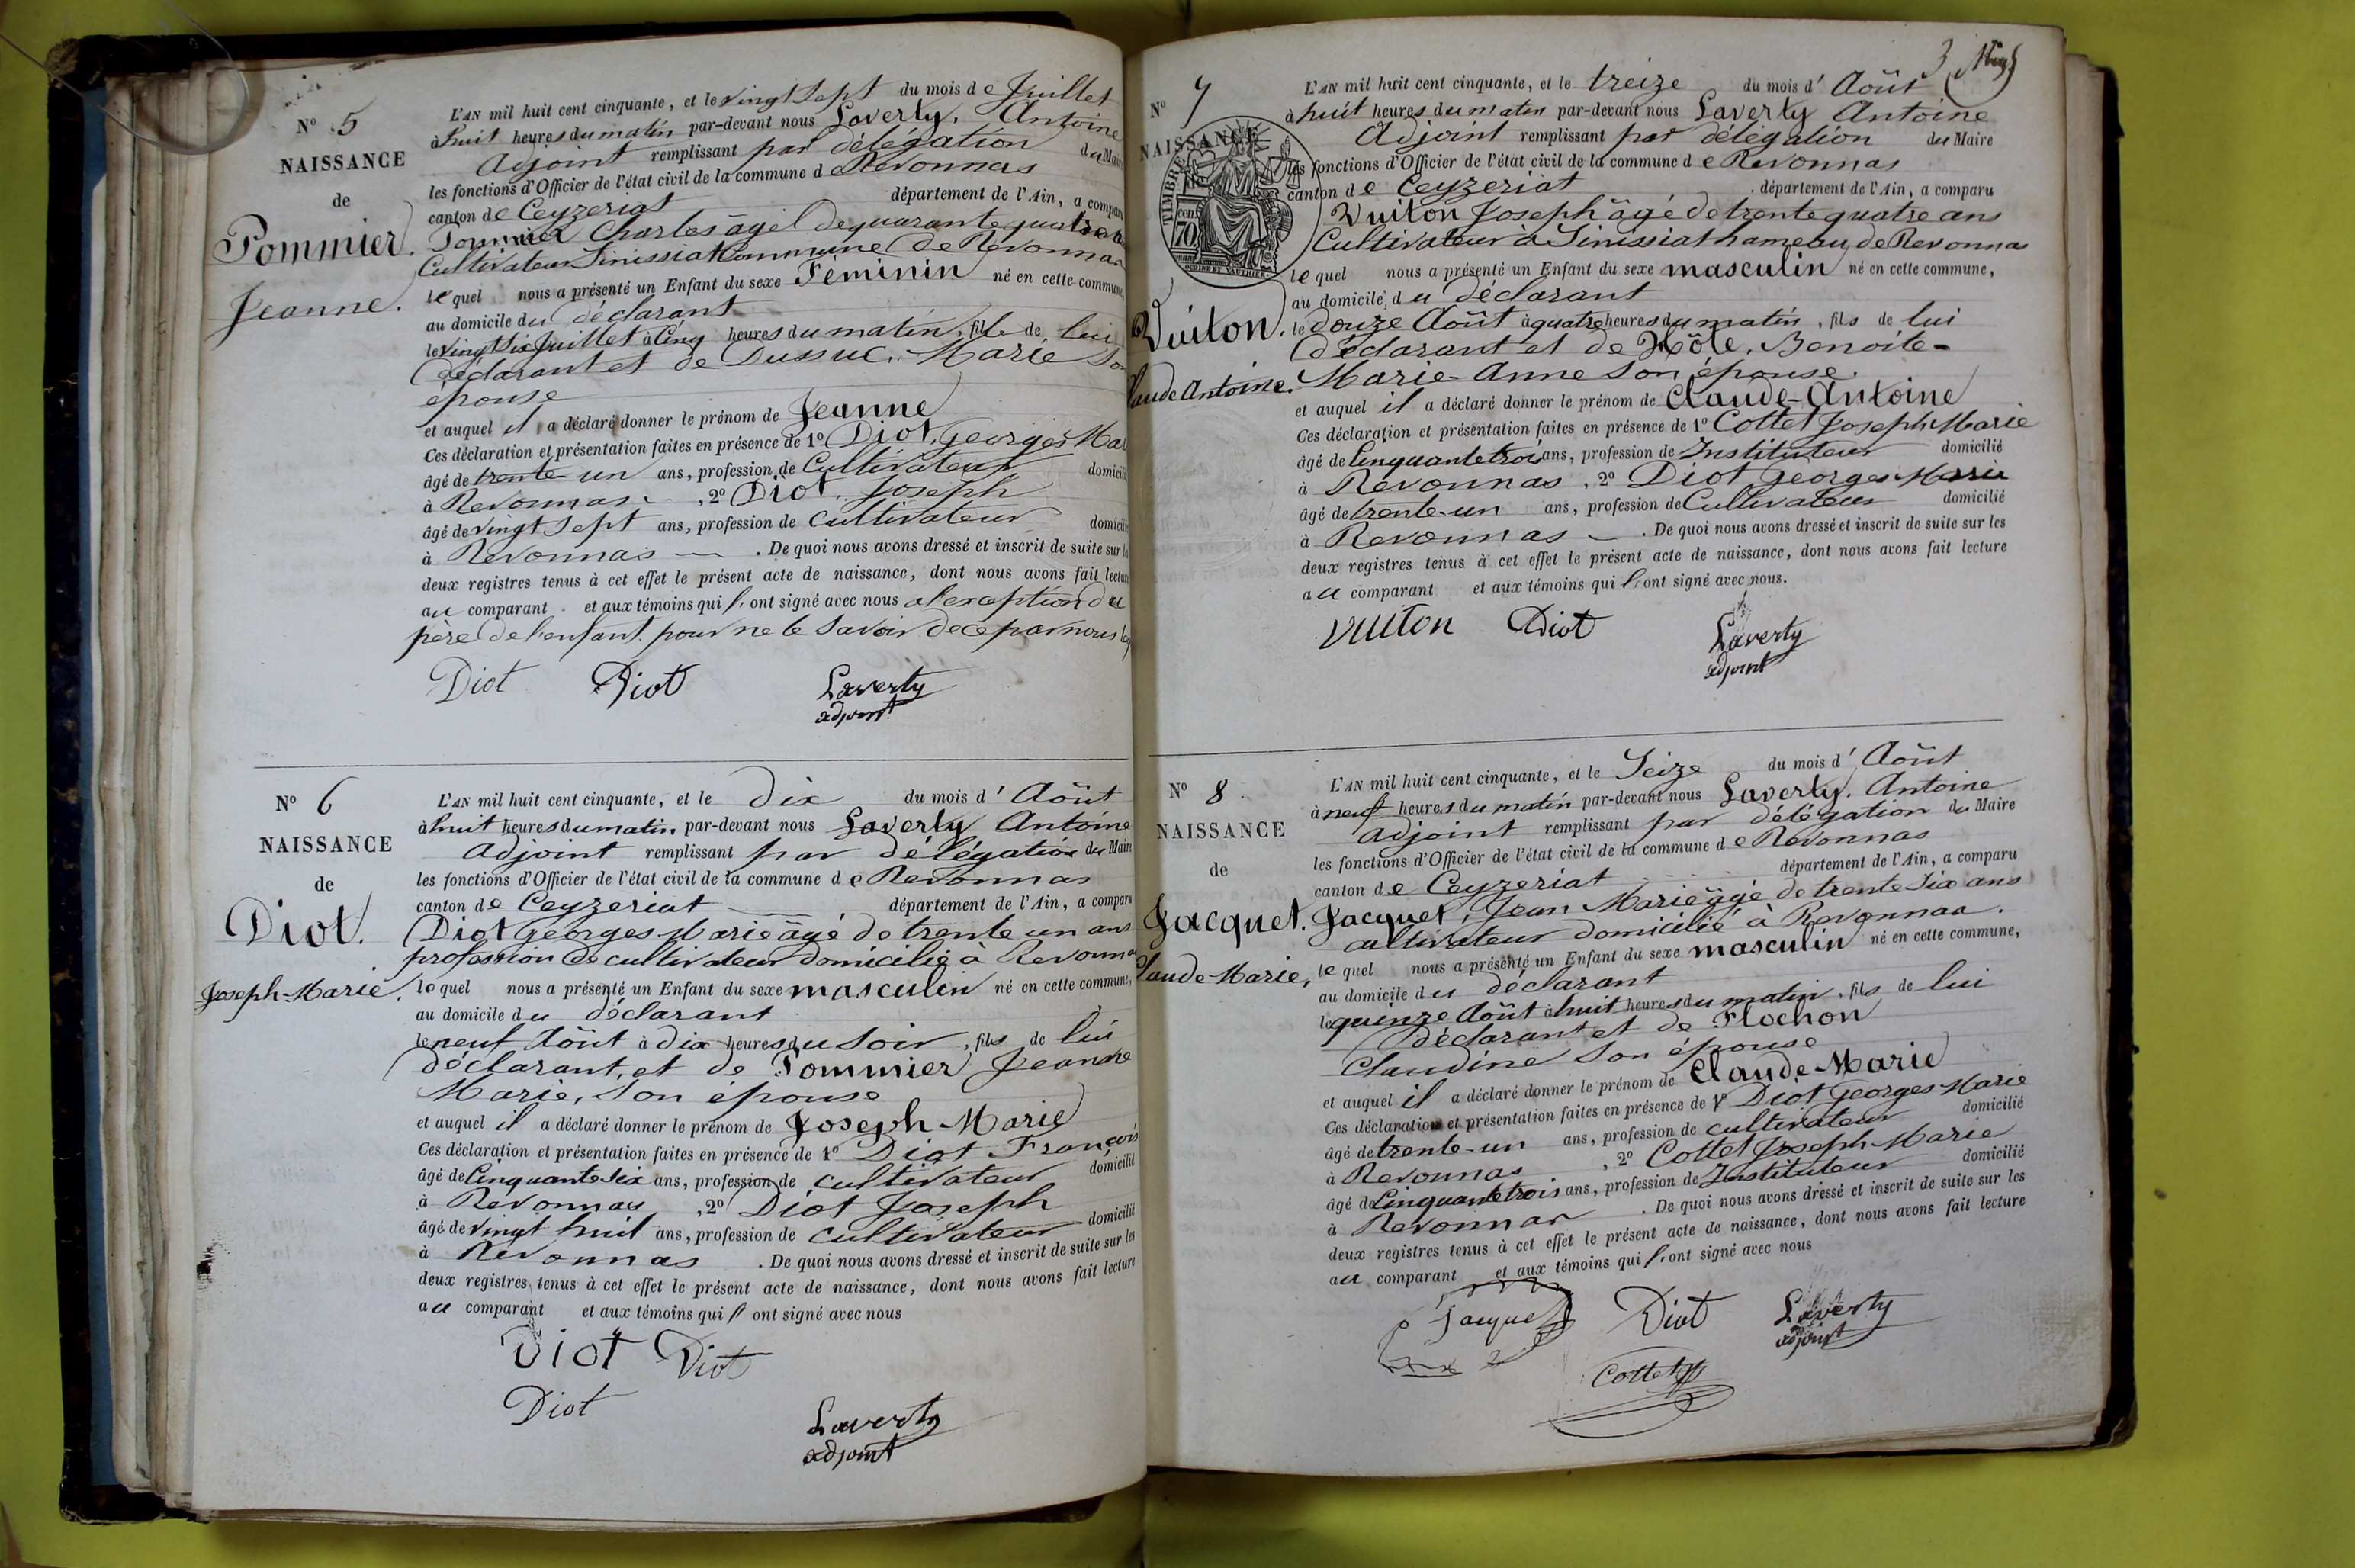 N° 5
NAISSANCE
de
Pommier.
Jeanne.
L'AN mil huit cent cinquante, et le vingt Sept du mois de Juillet
à huit heures du matin par-devant nous Laverty, Antoine
Adjoint remplissant par délégation du Maire
les fonctions d'Officier de l'état civil de la commune de Revonnas
canton de Ceyzeriat département de l'Ain, a comparu
Pommier Charles âgé de quarante quatre
Cultivateur Sinissiat Commune de Revonnas
lequel nous a présenté un Enfant du sexe Féminin né en cette commune,
au domicile du déclarant
le vingt Six Juillet à Cinq heures du matin, fille de lui
déclarant et de Dussuc, Marie Son
épouse
et auquel il a déclaré donner le prénom de Jeanne
Ces déclaration et présentation faites en présence de 1° Diot, Georges Mar
âgé de trente un ans, profession de Cultivateur domicilié
à Revonnas, 2° Diot, Joseph
âgé de vingt Sept ans, profession de Cultivateur domicilié
à Revonnas — . De quoi nous avons dressé et inscrit de suite sur les
deux registres tenus à cet effet le présent acte de naissance, dont nous avons fait lecture
au comparant et aux témoins qui l'ont signé avec nous a l'exception du
père de l'enfant pour ne le Savoir de ce par nous
Diot Diot Laverty
adjoint
N° 6
NAISSANCE
de
Diot.
Joseph-Marie.
L'AN mil huit cent cinquante, et le dix du mois d'Août
à huit heures du matin, par-devant nous Laverty Antoine
Adjoint remplissant par délégation du Maire
les fonctions d'Officier de l'état civil de la commune de Revonnas
canton de Ceyzeriat département de l'Ain, a comparu
Diot Georges-Marie âgé de trente un ans
profession de cultivateur domicilié à Revonnas
lequel nous a présenté un Enfant du sexe masculin né en cette commune,
au domicile du déclarant
le neuf Août à dix heures du Soir, fils de lui
déclarant, et de Pommier Jeanne
Marie, Son épouse
et auquel il a déclaré donner le prénom de Joseph-Marie
Ces déclaration et présentation faites en présence de 1° Diot François
âgé de Cinquante Six ans, profession de Cultivateur domicilié
à Revonnas, 2° Diot Joseph
âgé de vingt huit ans, profession de Cultivateur domicilié
à Revonnas . De quoi nous avons dressé et inscrit de suite sur les
deux registres tenus à cet effet le présent acte de naissance, dont nous avons fait lecture
au comparant et aux témoins qui l'ont signé avec nous
Diot Diot
Diot
Laverty
adjoint
3
N° 7
NAISSANCE
TIMBRE
70
Vuiton.
laude Antoine.
L'AN mil huit cent cinquante, et le treize du mois d'Août
à huit heures du matin par-devant nous Laverty Antoine
Adjoint remplissant par délégation du Maire
les fonctions d'Officier de l'état civil de la commune de Revonnas
canton de Ceyzeriat . département de l'Ain, a comparu
Vuiton Joseph âgé de trente quatre ans
Cultivateur à Sinissiat hameau de Revonnas
lequel nous a présenté un Enfant du sexe masculin né en cette commune,
au domicile du déclarant
le douze Août à quatre heures du matin, fils de lui
déclarant et de Hôte, Benoite-
Marie-Anne Son épouse.
et auquel il a déclaré donner le prénom de Claude-Antoine
Ces déclaration et présentation faites en présence de 1° Cottet Joseph Marie
âgé de Cinquante trois ans, profession de Instituteur domicilié
à Revonnas, 2° Diot Georges-Marie
âgé de trente-un ans, profession de Cultivateur domicilié
à Revonnas — . De quoi nous avons dressé et inscrit de suite sur les
deux registres tenus à cet effet le présent acte de naissance, dont nous avons fait lecture
au comparant et aux témoins qui l'ont signé avec nous.
Vuiton Diot Laverty
adjoint
N° 8
NAISSANCE
de
Jacquet.
laude-Marie,
L'AN mil huit cent cinquante, et le Seize du mois d'Août
à neuf heures du matin par-devant nous Laverty, Antoine
Adjoint remplissant par délégation du Maire
les fonctions d'Officier de l'état civil de la commune de Revonnas
canton de Ceyzeriat département de l'Ain, a comparu
Jacquet, Jean Marie âgé de trente Six ans
cultivateur domicilié à Revonnas.
lequel nous a présenté un Enfant du sexe masculin né en cette commune,
au domicile du déclarant
le quinze Août à huit heures du matin, fils de lui
déclarant et de Flochon
Claudine Son épouse
et auquel il a déclaré donner le prénom de Claude-Marie
Ces déclaration et présentation faites en présence de 1° Diot Georges-Marie
âgé de trente-un ans, profession de cultivateur domicilié
à Revonnas, 2° Cottet Joseph-Marie
âgé de Cinquante trois ans, profession de Instituteur domicilié
à Revonnas . De quoi nous avons dressé et inscrit de suite sur les
deux registres tenus à cet effet le présent acte de naissance, dont nous avons fait lecture
au comparant et aux témoins qui l'ont signé avec nous
Jacquet Diot Laverty
adjoint
Cottet